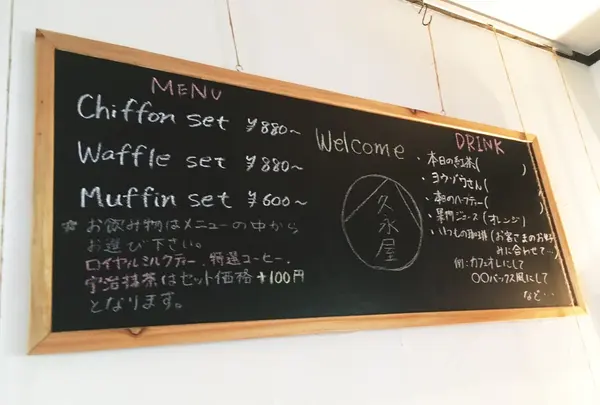 MENU
Chiffon set ¥880~
Waffle set ¥880~
Muffin set ¥600~
☆ お飲み物はメニューの中から
お選び下さい。
ロイヤルミルクティー、特選コーヒー、
宇治抹茶はセット価格+100円
となります。
Welcome
久永屋
DRINK
・本日の紅茶(
・ヨウゾウさん(
・ハーブティー(
ジュース(オレンジ)
・いつもの珈琲(お客さまのお好
みに合わせて…)
例:カフェオレにして
〇〇バックス風にして
など…